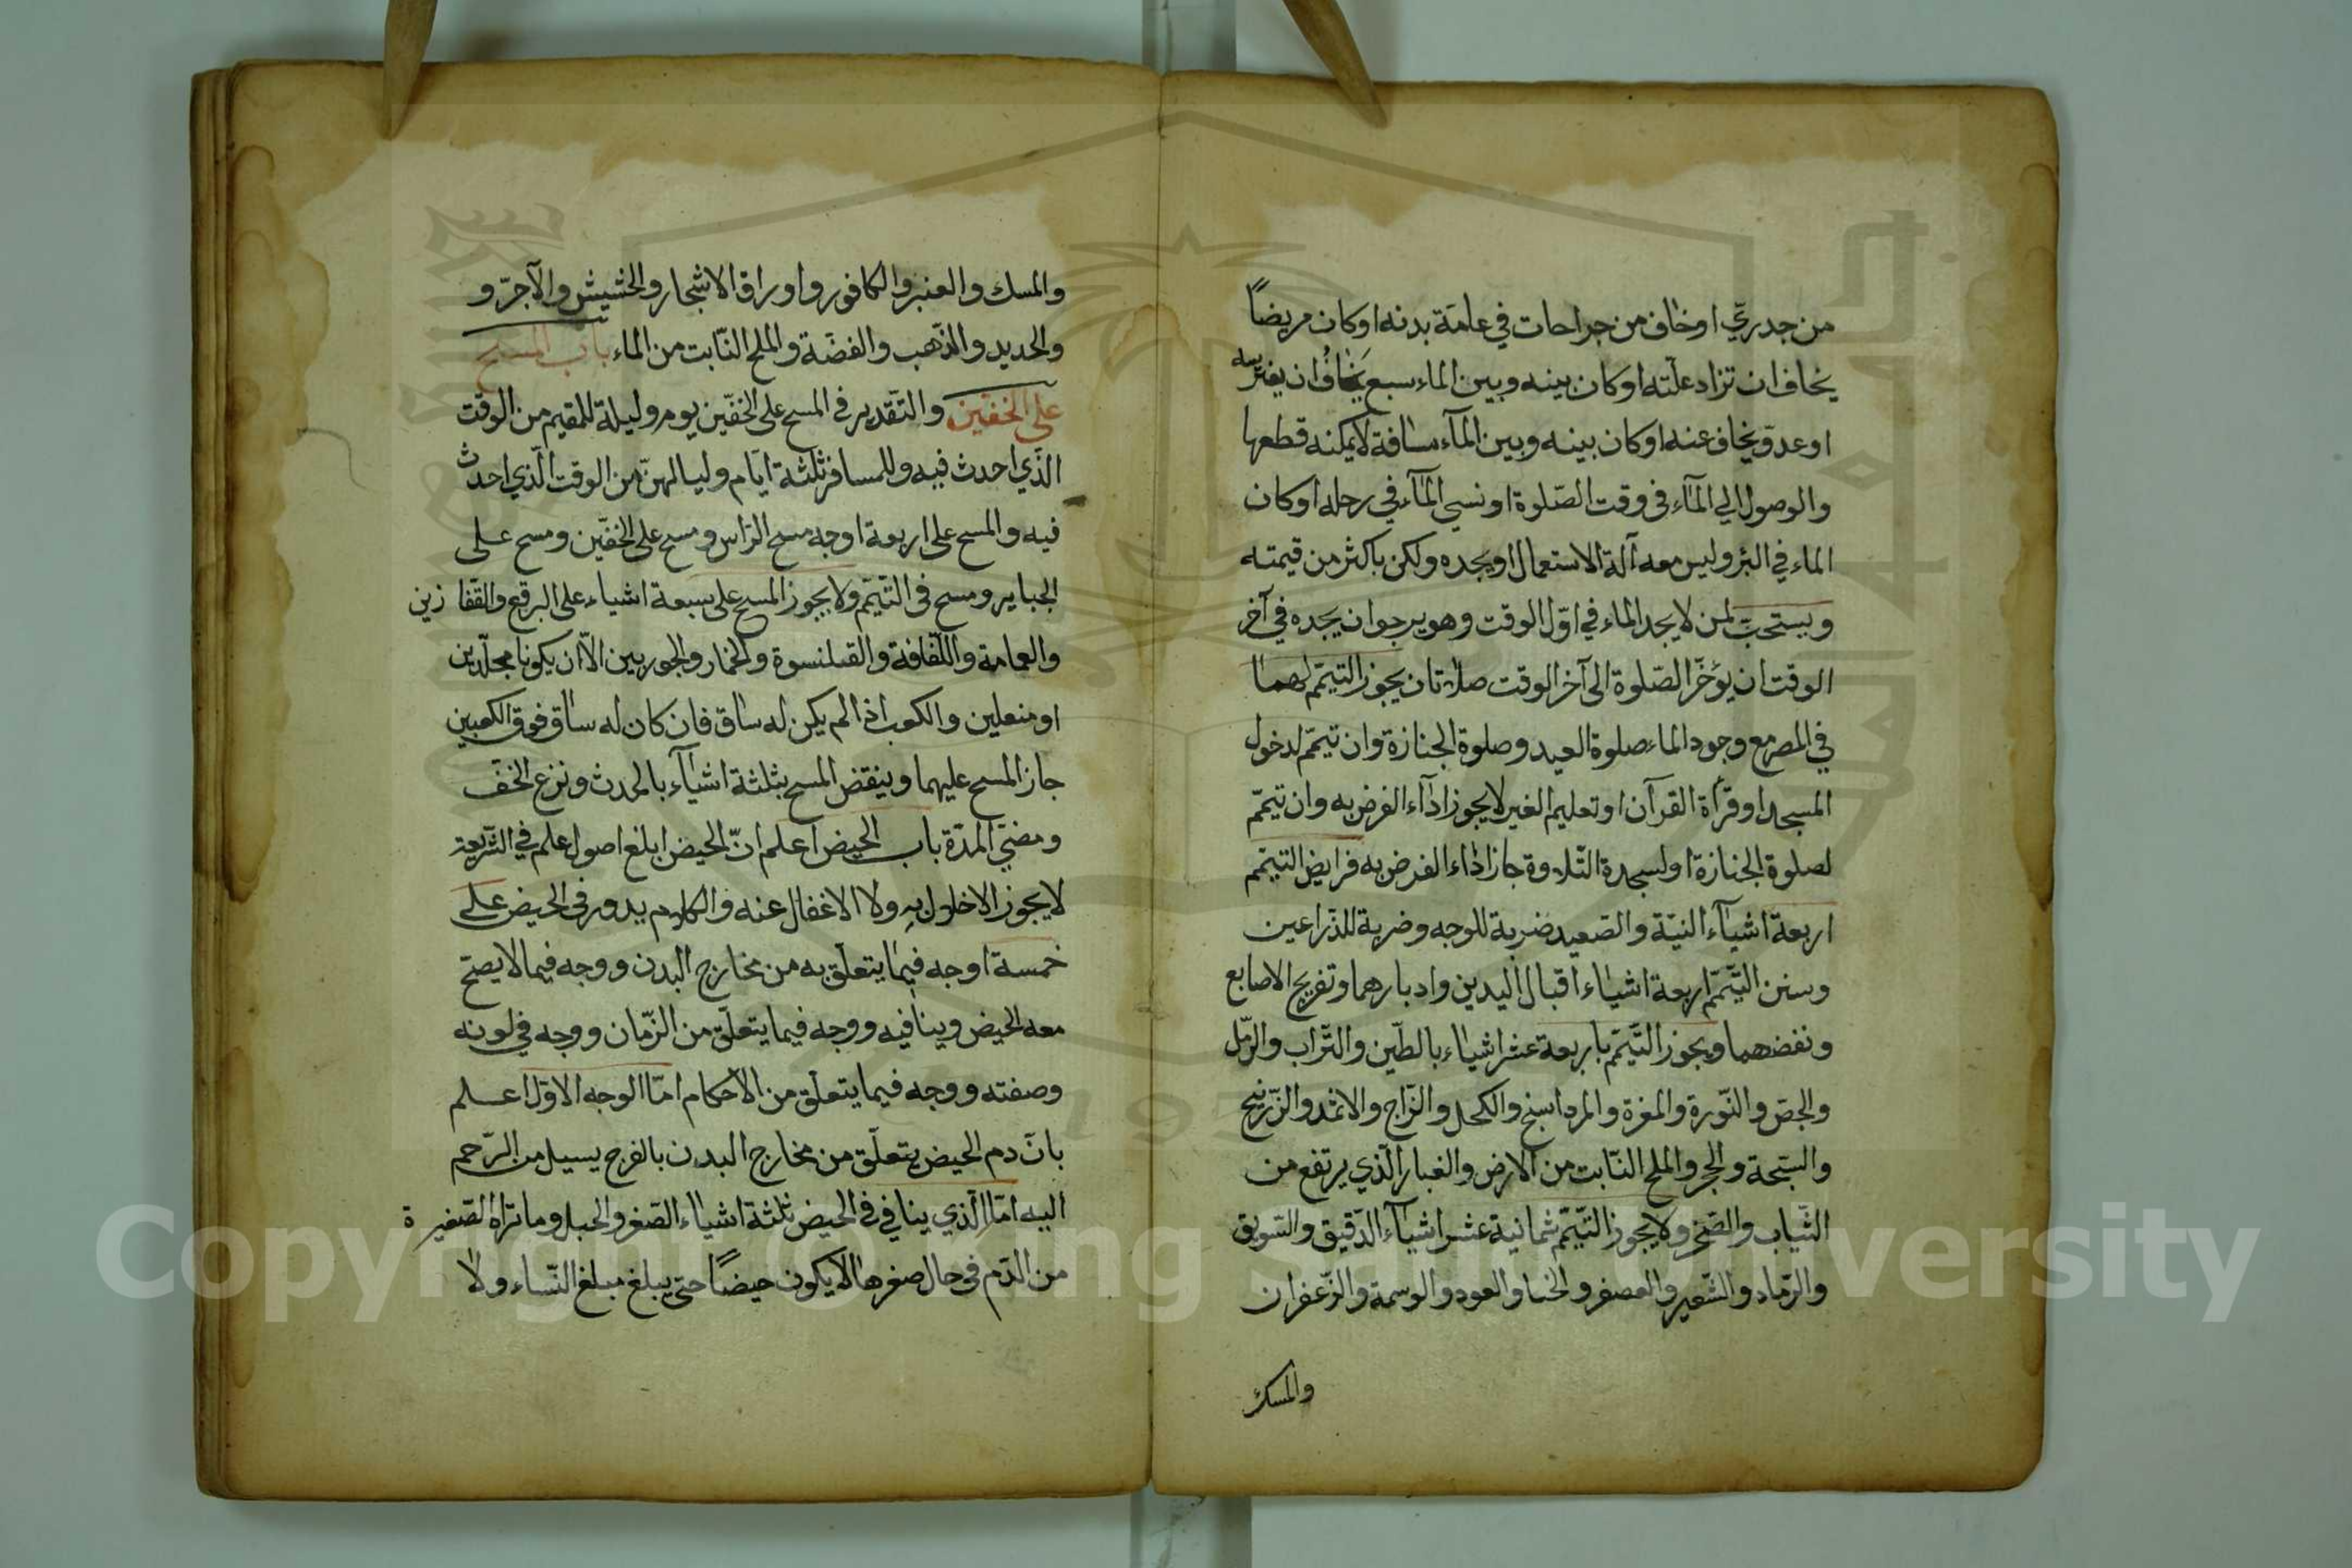 من جدريّ اوخاف من جراحات في عامّة بدنه اوكان مريضاً
يخاف ان تزاد علّته اوكان بينه وبين الماء سبع يخاف ان يفترسه
اوعدوّ يخاف عنه اوكان بينه وبين المآء مسافة لا يمكنه قطعها
والوصول الي المآء في وقت الصّلوة اونسي المآء في رحله اوكان
الماء في البئر وليس معه آلة الاستعمال اويجده ولكن باكثر من قيمته
ويستحبّ لمن لا يجد الماء في اوّل الوقت وهو يرجوا ان يجده في آخر
الوقت ان يؤخّر الصّلوة الى آخر الوقت صلاتان يجوز التيمّم لهما
في المصر مع وجود الماء صلوة العيد وصلوة الجنازة وان تيمّم لدخول
المسجد اوقرأة القرآن اوتعليم الغير لا يجوز ادآء الفرض به وان تيمّم
لصلوة الجنازة اولسجدة التّلاوة جاز اداء الفرض به فرايض التيمّم
اربعة اشيآء النيّة والصّعيد ضربة للوجه وضربة للذّراعين
وسنن التّيمّم اربعة اشياء اقبال اليدين وادبارهما وتفريج الاصابع
ونفضهما ويجوز التّيمّم باربعة عشر اشياء بالطّين والتّراب والرّمل
والجصّ والنّورة والمغرة والمرداسنج والكحل والزّاج والاثمد والزّرنيخ
والسّبخة والحجر والملح النّابت من الارض والغبار الّذي يرتفع من
الثّياب والصّخر ولا يجوز التّيمّم ثمانية عشر اشيآء الدّقيق والسّويق
والرّماد والشّعير والعصفر والحنا والعود والوسمة والزّعفران
والمسك
والمسك والعنبر والكافور واوراق الاشجار والحشيش والآجرّ و
والحديد والذّهب والفضّة والملح النّابت من الماء باب المسح
على الخفّين والتّقدير في المسح على الخفّين يوم وليلة للمقيم من الوقت
الّذي احدث فيه وللمسافر ثلثة ايّام ولياليهنّ من الوقت الّذي احدث
فيه والمسح على اربعة اوجه مسح الرّاس ومسح على الخفّين ومسح على
الجباير ومسح في التّيمّم ولا يجوز المسح على سبعة اشياء على البرقع والقفّازين
والعمامة واللّفافة والقلنسوة والخمار والجوربين الاّ ان يكونا مجلّدين
اومنعلين والكعب اذا لم يكن له ساق فان كان له ساق فوق الكعبين
جاز المسح عليهما وينقض المسح بثلثة اشيآء بالحدث ونزع الخفّ
ومضيّ المدّة باب الحيض اعلم انّ الحيض ابلغ اصول علم في الشّريعة
لا يجوز الاخلال به ولا الاغفال عنه والكلام يدور في الحيض على
خمسة اوجه فيما يتعلّق به من مخارج البدن ووجه فيما لا يصحّ
معه الحيض وينافيه ووجه فيما يتعلّق من الزّمان ووجه في لونه
وصفته ووجه فيما يتعلّق من الاحكام امّا الوجه الاوّل اعلم
بانّ دم الحيض يتعلّق من مخارج البدن بالفرج يسيل من الرّحم
اليه امّا الّذي ينافي في الحيض ثلثة اشياء الصّغر والحبل وما تراه الصّغيرة
من الدّم في حال صغرها لا يكون حيضاً حتى يبلغ مبلغ النّساء ولا
Copyright © King Saud University